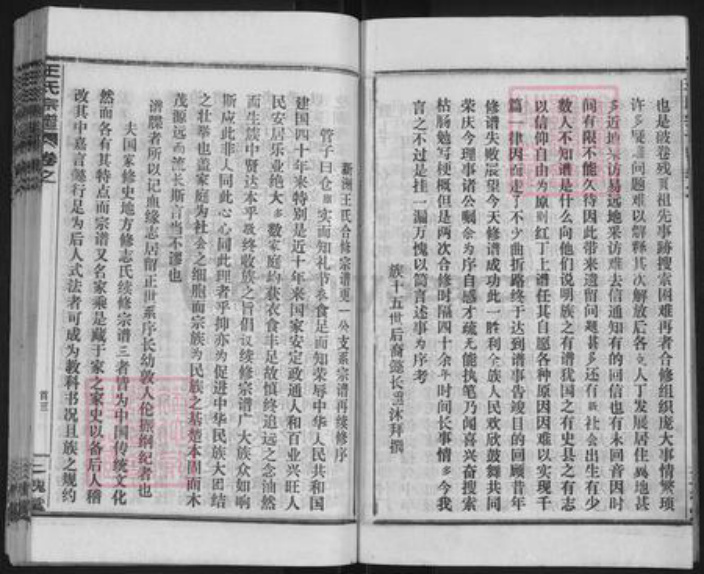 也是破卷残页祖先事跡搜索困难再者合修组织庞大事情繁琐
许多疑难问题难以解释其次解放后各支人丁发展居住异地甚
多近地采访易远地采访难去信通知有的回信也有未回音因时
间有限不能久待因此带来遗留问题甚多还有新社会出生有少
数人不知谱是什么向他们说明族之有谱犹国之有史县之有志
以信仰自由为原则红丁上谱任其自愿各种原因因难以实现千
篇一律因而走了不少曲折路终于达到谱事告竣目的回顾昔年
修谱失败展望今天修谱成功此一胜利全族人民欢欣鼓舞共同
荣庆今理事诸公嘱余为序自感才疏无能执笔乃闻喜兴奋搜索
枯肠勉写梗概但是两次合修时隔四十余年时间长事情多今我
言之不过是挂一漏万愧以简言述事为序考
族十五世后裔懿长盥沐拜撰
新洲王氏合修宗谱更一公支系宗谱再续修序
管子曰仓廪实而知礼节衣食足而知荣辱中华人民共和国
建国四十年来特别是近十年来国家安定政通人和百业兴旺人
民安居乐业绝大多数家庭约获衣食丰足故慎终追远之念油然
而生族中贤达本乎敬终收族之旨倡议续修宗谱广大族众如响
斯应此非人同此心心同此理者乎抑亦为促进中华民族大团结
之壮举也盖家庭为社会之细胞而宗族为民族之基楚本固而木
茂源远而流长斯言当不谬也
谱牒者所以记血缘志居留正世系序长幼敦人伦振纲纪者也
夫国家修史地方修志氏续修宗谱三者皆为中国传统文化
然而各有其特点而宗谱又名家乘是藏于家之家史以备后人稽
改其中嘉言懿行足为后人式法者可成为教科书况且族之规约
王氏宗谱 卷之
首三
三槐堂